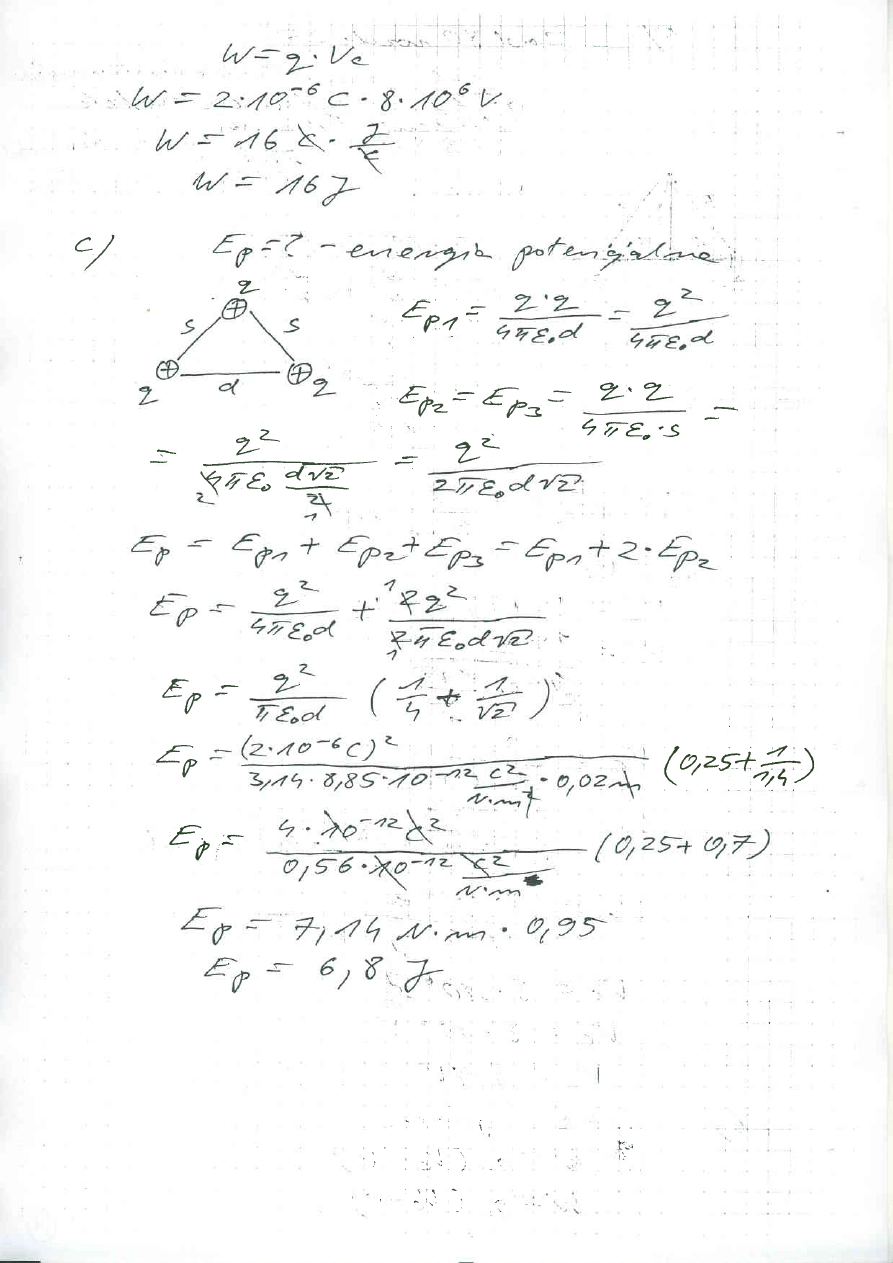 W = q · Vc
W = 2·10⁻⁶ C · 8·10⁶ V
W = 16 C · J/C
W = 16 J
c) Ep = ? - energia potencjalna
q
s s
q d q
Ep1 = q·q/4πε₀d = q²/4πε₀d
Ep2 = Ep3 = q·q/4πε₀·s =
= q²/4πε₀ d√2/2 = q²/2πε₀d√2
2 1
Ep = Ep1 + Ep2 + Ep3 = Ep1 + 2·Ep2
Ep = q²/4πε₀d + 2q²/2πε₀d√2
1 1
Ep = q²/πε₀d (1/4 + 1/√2)
Ep = (2·10⁻⁶C)²/3,14·8,85·10⁻¹² C²/N·m² · 0,02m (0,25+1/1,4)
Ep = 4·10⁻¹² C²/0,56·10⁻¹² C²/N·m (0,25+0,7)
Ep = 7,14 N·m · 0,95
Ep = 6,8 J